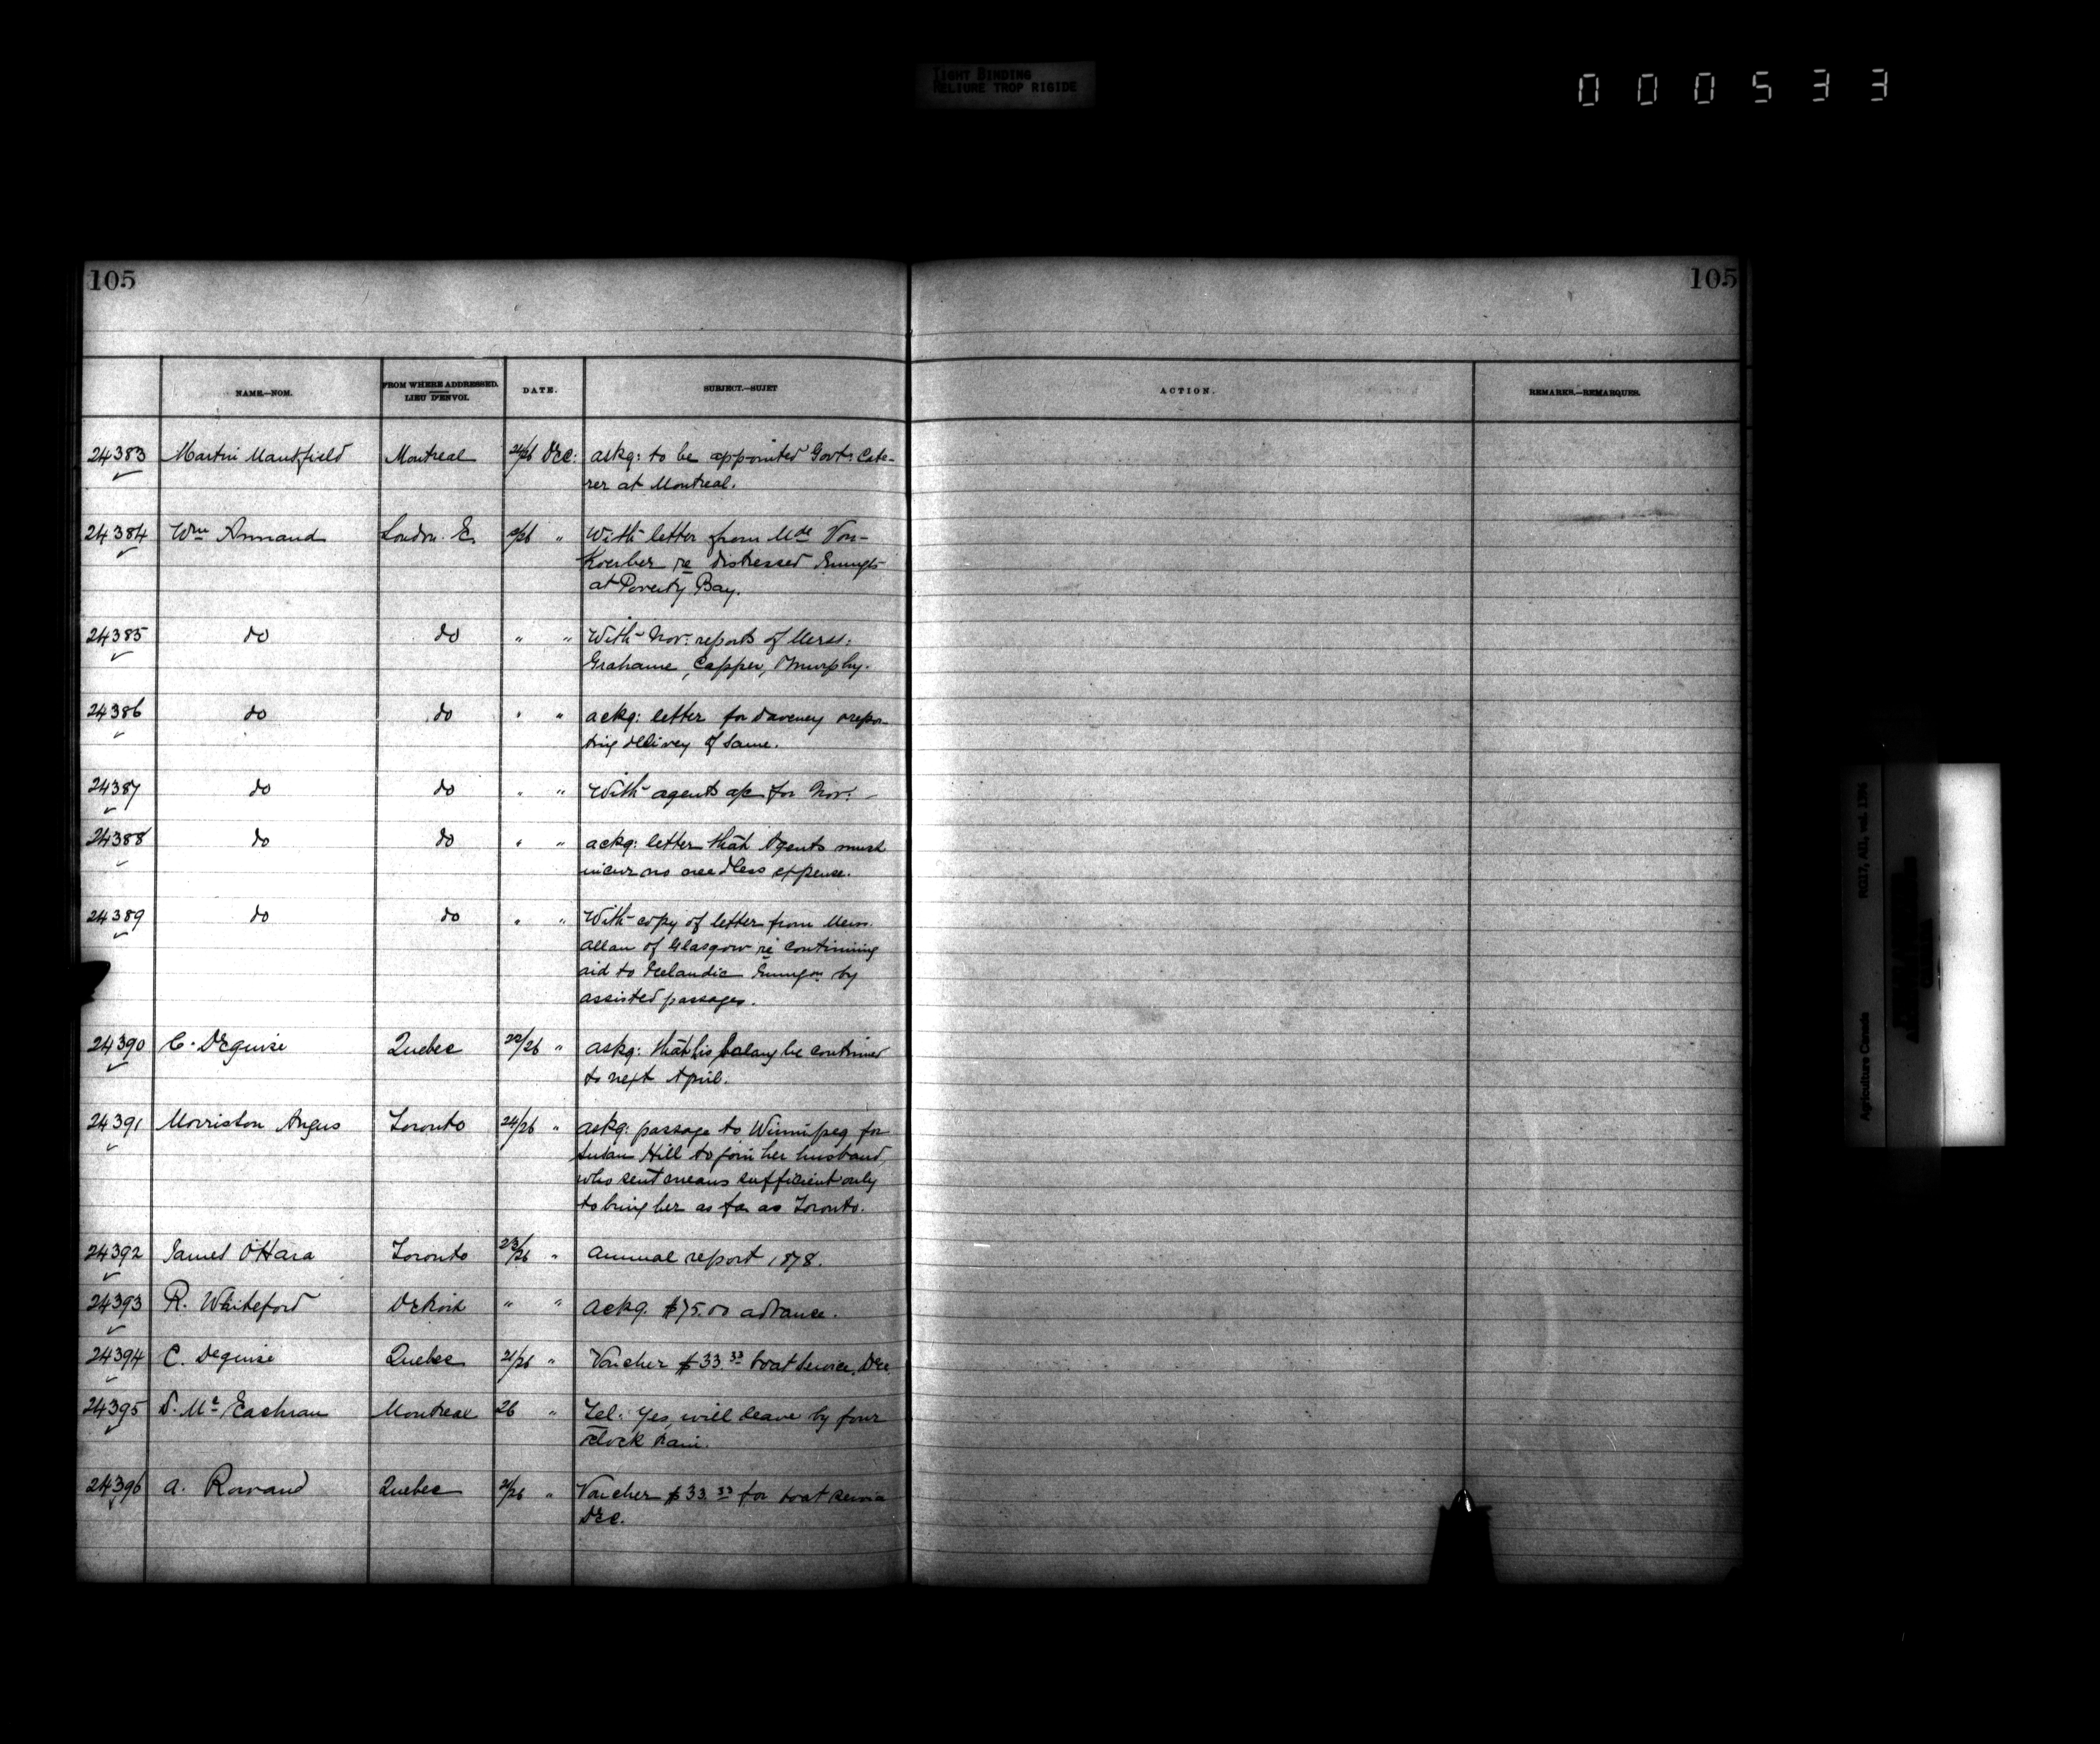 TIGHT BINDING
RELIURE TROP RIGIDE
000533
105 105
NAME.—NOM. FROM WHERE ADDRESSED. LIEU D'ENVOI. DATE. SUBJECT.—SUJET ACTION. REMARKS.—REMARQUES.
24383 Martin Montreal 24/26 Dec: askg: to be appointed Govt: Cate-
rer at Montreal.
24384 Wm Annand London. E. /26 " With letter from Mde Von-
Koerber re distressed Emigts
at Poverty Bay.
24385 do do " " With Nov: reports of Mess:
Grahame, Capper, Murphy.
24386 do do " " ackg: letter for Daveney & repor-
ting delivey of same.
24387 do do " " With agents a/c for Nov: -
24388 do do " " ackg: letter that Agents must
incur no needless expense.
24389 do do " " With copy of letter from Mess.
Allan of Glasgow re continuing
aid to Icelandic Emigon by
assisted passages.
24390 C. Deguise Quebec 22/26 " askg: that his salary be continued
to next April.
24391 Morriston Angus Toronto 24/26 " askg: passage to Winnipeg for
Susan Hill to join her husband,
who sent means sufficient only
to bring her as far as Toronto.
24392 James O'Hara Toronto 23/26 " Annual report 1878.
24393 R. Whiteford Detroit " " ackg. $75.00 advance.
24394 C. Deguise Quebec 21/26 " Voucher $33.33 boat service, Dec
24395 D. Mc Eachran Montreal 26 " Tel: Yes, will leave by four
o'clock train.
24396 A. Rowand Quebec 21/26 " Voucher $33.33 for boat service
Dec.
RG17, AII, vol. 1396
Agriculture Canada